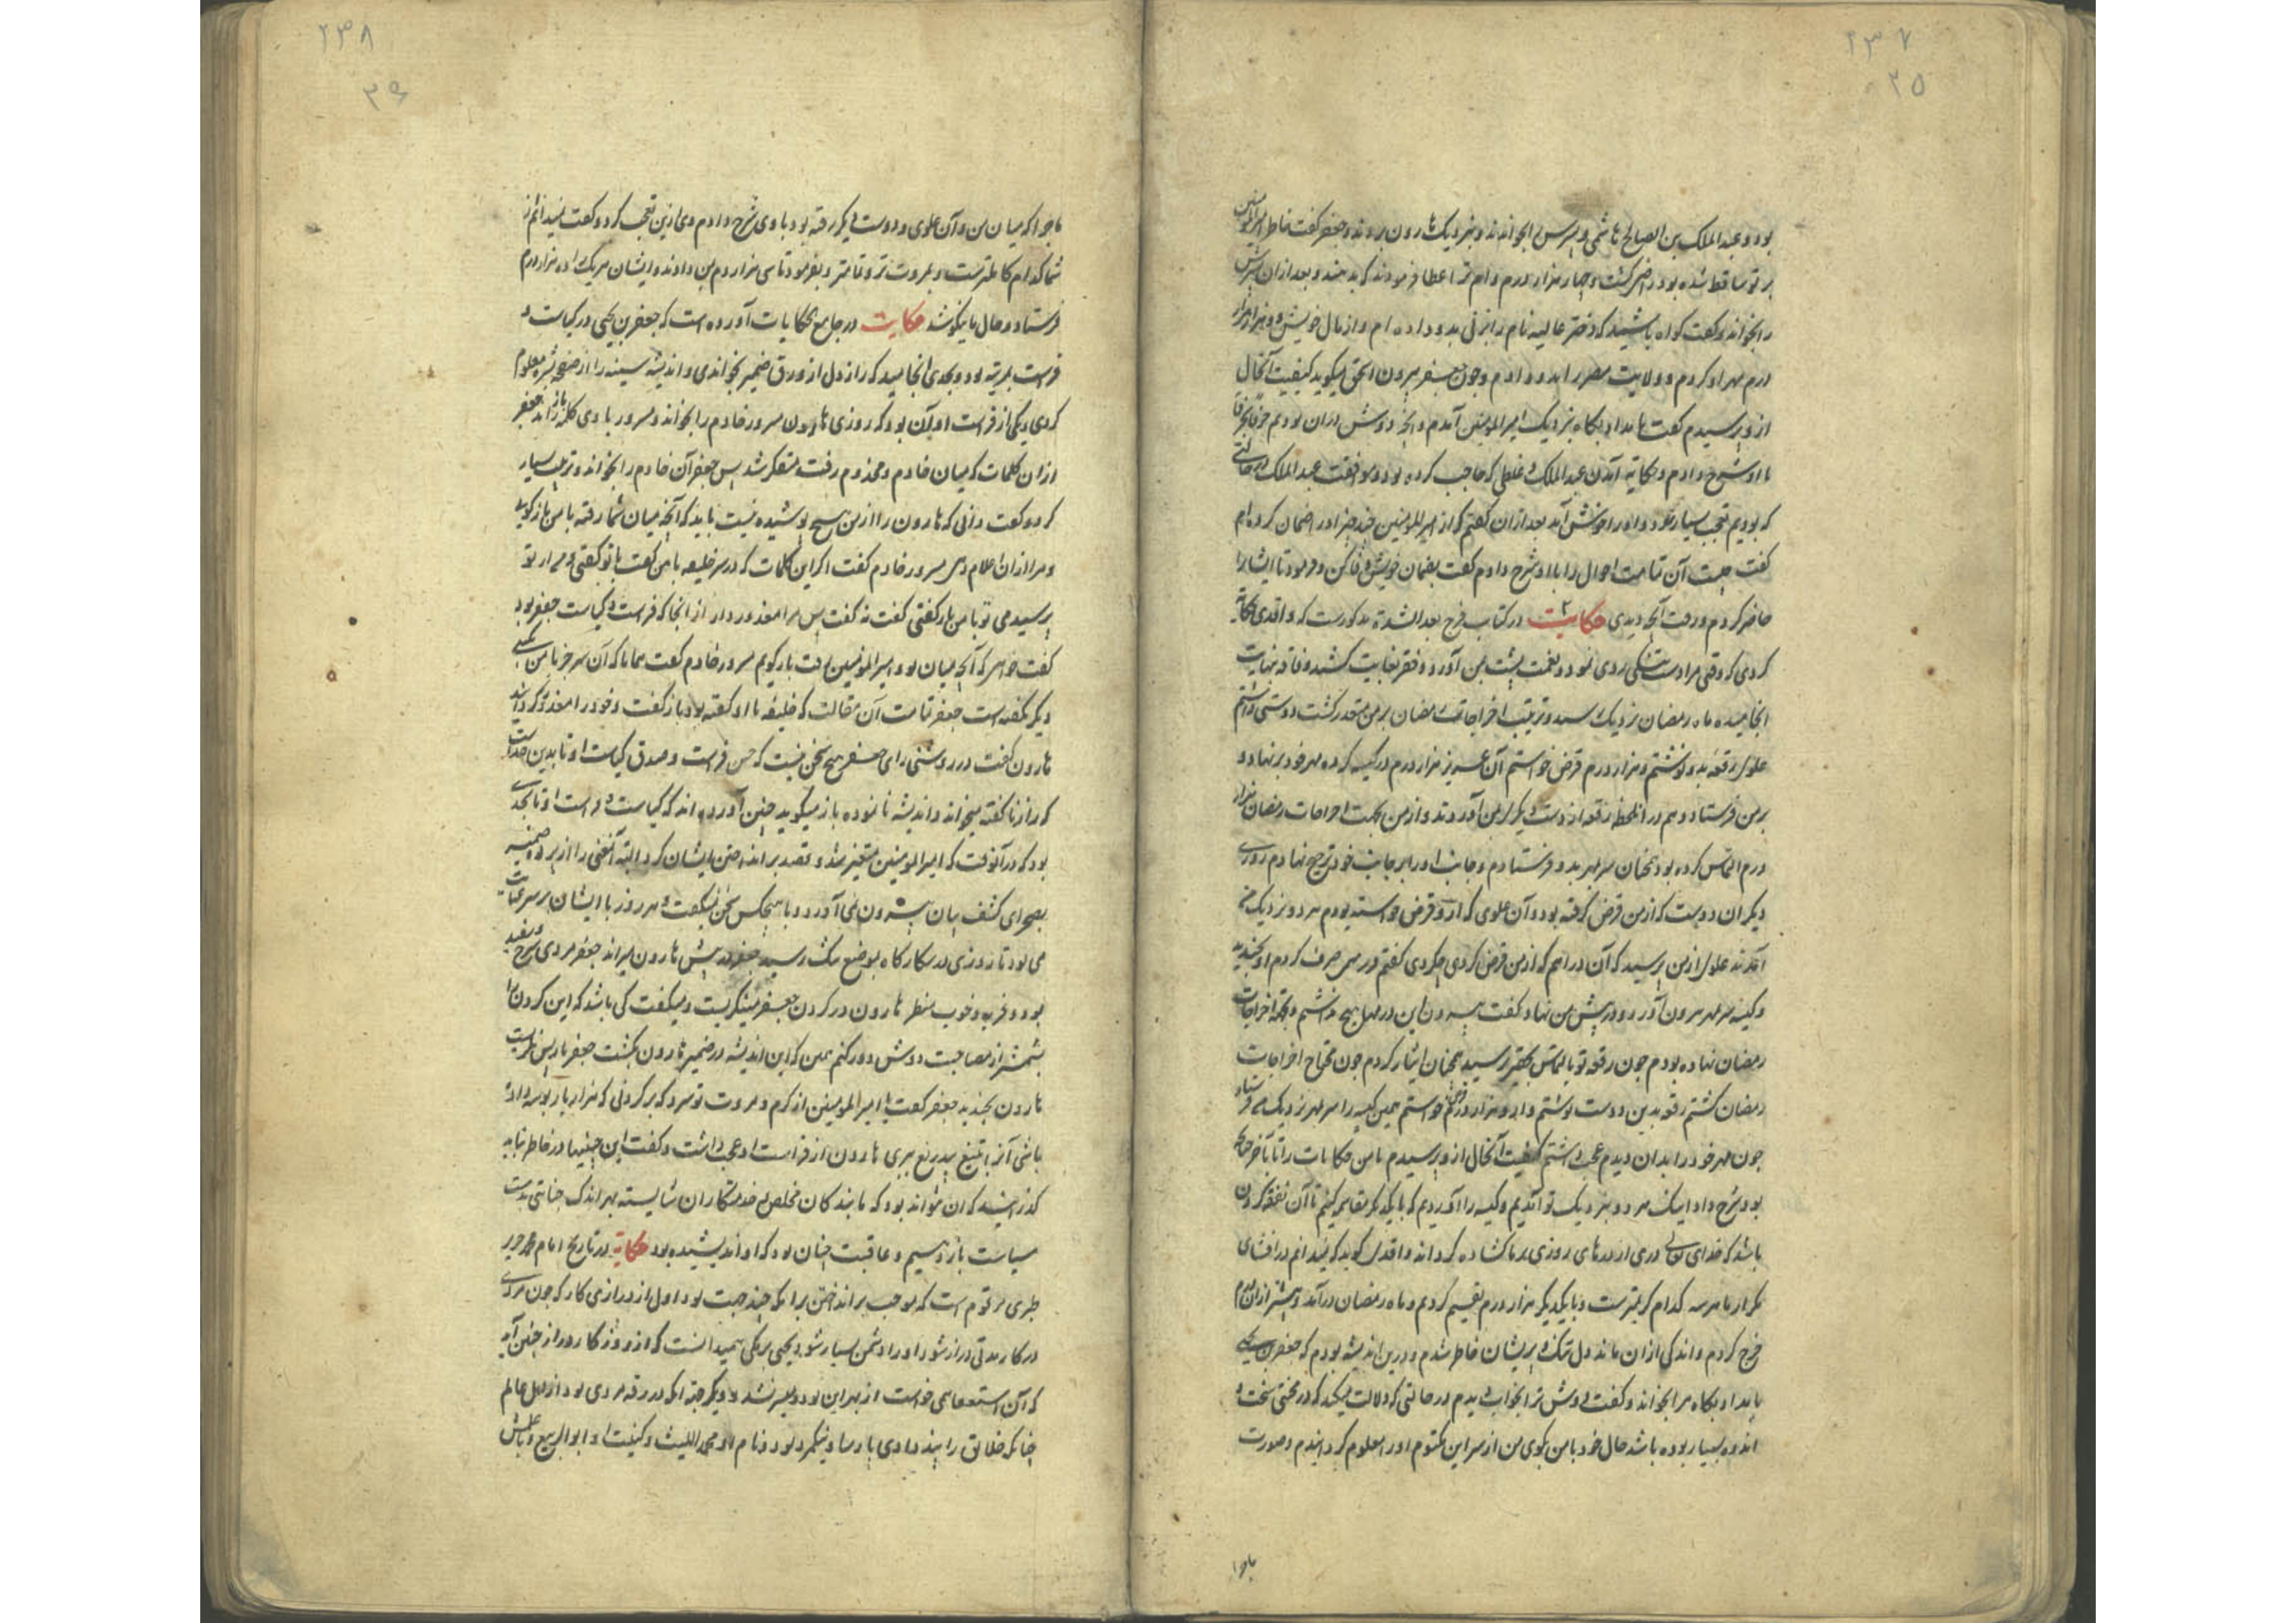 ۲۳۷
۲۵
بود و عبدالملک بن الصالح هاشمی و پسرش را بخواندند و بنزدیک هارون بردند و جعفر گفت خاطر امیرالمومنین
بر تو ساقط شده بود راضی گشت و چهار هزار درم وام ترا عطا فرمودند که بدهند و بعد از آن پسرش
را بخواند و گفت گواه باشید که دختر عالیه نام را بزنی بدو داده ام و از مال خویش دو هزار هزار
درم مهر او کردم و ولایت مصر را بدو دادم و چون جعفر بیرون اسحق میگوید کیفیت آنحال
ازو پرسیدم گفت بامداد پگاه بنزدیک امیرالمومنین آمدم و آنچه دوش دران بودیم حرفا بحرفا
با او شرح دادم و حکایه آمدن عبدالملک و غلطی که حاجب کرده بود و موافقت عبدالملک در حالتی
که بودیم تعجب بسیار نمود و او را خوش آمد بعد ازان گفتم که از امیرالمومنین چند چیز او را ضمان کرده ام
گفت چیست آن تمامت احوال را با او شرح دادم گفت بضمان خویش وفا کن و فرمود تا ایشانرا
حاضر کردم و رفت آنچه دیدی حکایت در کتاب فرج بعد الشدة مذکورست که واقدی حکایة
کردی که وقتی مرا دست تنگی روی نمود و نعمت پشت بمن آورد و فقر بغایت کشید و فاقه بنهایت
انجامیده ماه رمضان نزدیک رسید و ترتیب اخراجات رمضان بر من متعذر گشت دوستی داشتم
علوی رقعه بدو نوشتم و هزار درم قرض خواستم آن عزیز هزار درم در کیسه کرده مهر خود بر نهاد و
بر من فرستاد و هم در آن لحظه رقعه از دست دیگر بمن آوردند و از من بجهت اخراجات رمضان هزار
درم التماس کرده بود همچنان سر بمهر بدو فرستادم و جانب او را بر جانب خود ترجیح نهادم روزی
دیگر ان دوست که از من قرض گرفته بود و آن علوی که ازو قرض خواسته بودم هر دو بنزدیک من
آمدند علوی از من پرسید که آن دراهم که از من قرض کردی چکردی گفتم در مهمی صرف کردم او بخندید
و کیسه سر بمهر بیرون آورد و در پیش من نهاد و گفت بیرون این در مهل هیچ نداشتم و بجهة اخراجات
رمضان نهاده بودم چون رقعه تو بالتماس بفقیر رسید همچنان ایثار کردم چون محتاج اخراجات
رمضان گشتم رقعه بدین دوست نوشتم و ازو هزار درم قرض خواستم همین کیسه را سر بمهر نزدیک من فرستاد
چون مهر خود را بدان دیدم عجب داشتم کیفیت آنحال ازو پرسیدم با من حکایات را تا آخر چنانکه
بود شرح داد اینک هر دو بنزدیک تو آمدیم و کیسه را آوردیم که با یکدیگر مقاسمه کنیم تا آن نفقه کردن
باشد که خدای تعالی دری از درهای روزی بر ما گشاده گرداند واقدی گوید که نمیدانم در افشای
مکر از ما هر سه کدام کریمترست و با یکدیگر هزار درم تقسیم کردیم و ماه رمضان درآمد و بیشتر ازان درم
خرج کردم و اندکی ازان ماند دل تنگ و پریشان خاطر شدم و درین اندیشه بودم که جعفر بن یحیی
بامداد پگاه مرا بخواند و گفت دوش ترا بخواب دیدم در حالتی که دلالت میکند که در محنتی سخت و
اندوه بسیار بوده باشد حال خود با من بگوی من از سر این مکتوم او را معلوم گردانیدم و صورت
ماجرا
۲۳۸
ماجرا که میان من و آن علوی و دوست دیگر رفته بود با وی شرح دادم وی ازین تعجب کرد و گفت نمیدانم از
شما کدام کاملترست و بمروت تر و تمامتر و بفرمود تا سی هزار درم بمن دادند و ایشان هریک را ده هزار درم
فرستاد و حال ما نیکو شد حکایت در جامع الحکایات آورده است که جعفر بن یحیی در کیاست و
فراست بمرتبه بود و بحدی انجامید که راز دل از ورق ضمیر بخواندی و اندیشه سینه را از صفحه بشره معلوم
کردی و یکی از فراست او آن بود که روزی هارون مسرور خادم را بخواند و مسرور با وی کلمه باز راند جعفر
ازان کلمات که میان خادم و مخدوم رفت متفکر شد پس جعفر آن خادم را بخواند و ترتیب بسیار
کرد و گفت دانی که هارون را از من هیچ پوشیده نیست باید که آنچه میان شما رفته با من بازگوئی
و مرا ازان اعلام دهی مسرور خادم گفت اگر این کلمات که در سر خلیفه با من گفت با تو گفتی و مرا از تو
پرسیدمی تو با من بازگفتی گفت نه گفت پس مرا معذور دار از انجا که فراست و کیاست جعفر بود
گفت خواهی که آنچه میان تو و امیرالمومنین رفت بازگویم مسرور خادم گفت همانا که آن سر جز با من بکسی
دیگر نگفته است جعفر تمامت آن مقالت که خلیفه با او گفته بود بازگفت و خود را معذور گردانید
هارون گفت در روشنی رای جعفر هیچ سخن نیست که حسن فراست و صدق کیاست او تا بدین حداست
که راز ناگفته میخواند و اندیشه نانموده باز میگوید چنین آورده اند که کیاست و فراست او تا بحدی
بود که در آنوقت که امیرالمومنین متغیر شد و قصد برانداختن ایشان کرد البته آنمعنی را از پرده ضمیر
بصحرای کشف بیان بیرون نمی آورد و با هیچکس سخن نمیگفت و هر روز با ایشان بر سر عنایت
می بود تا روزی در شکارگاه بموضع تنگ رسید جعفر در پیش هارون میراند جعفر مردی سرخ و سفید
بود و فربه و خوب منظر هارون در گردن جعفر مینگریست و میگفت کی باشد که این گردن را
بشمشیر از مصاحبت دوش دور کنم همین که این اندیشه در ضمیر هارون بگذشت جعفر باز پس نگریست
هارون بخندید جعفر گفت یا امیرالمومنین از کرم و مروت تو سزد که بر گردنی که هزار بار بوسه داده
باشی آنرا بتیغ بیدریغ ببری هارون از فراست او عجب داشت و گفت این چنینها در خاطر نباید
گذرانید که ان چون تواند بود که ما بندگان مخلص و خدمتکاران شایسته بهر اندک جنایتی بدست
سیاست باز دهیم و عاقبت چنان بود که او اندیشیده بود حکایة در تاریخ امام محمد جریر
طبری مرقوم است که موجب برانداختن برامکه چند جهت بود اول از درازی کار که چون مردی
در کار مدتی دراز شود او را دشمن بسیار شود یحیی برمکی همیدانست که از روزگار دراز چنین آید
که آن استعفا می خواست از بهر این بود و میسر نشد و دیگر جهة آنکه در رقه مردی بود از اهل عالم
چنانکه خلایق را پند دادی پارسا و نیکمرد بود و نام او محمد اللیث و کنیت او ابوالربیع و بمجلسش